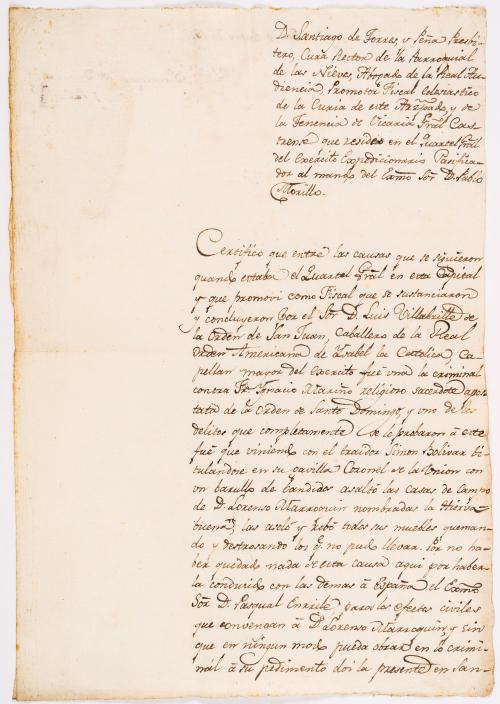 D. Santiago de Torres, y Peña Presbi-
tero, Cura Rector de la Parroquial
de las Nieves, Abogado de la Real Au-
diencia, Promotor Fiscal eclesiastico
de la Curia de este Arzpado, y de
la Tenencia de Vicaria Gral Cas-
trense que reside en el Quartel Gral
del Exercito Expedicionario Pacifica-
dor al mando del Exmo Sor D. Pablo
Morillo.
Certifico que entre las causas que se siguieron
quando estaba el Quartel Gral en esta Capital
y que promovi como Fiscal que se sustanciaron
y concluyeron por el Sor D. Luis Villabrille de
la Orden de San Juan, Caballero de la Real
Orden Americana de Ysabel la Catolica, Ca-
pellan mayor del exercito fué una la criminal
contra Fr. Ygnacio Mariño religioso sacerdote apos-
tata de la Orden de Santo Domingo, y uno de los
delitos que completamente se le probaron á este
fué que viniendo con el traidor Simon Bolivar ti-
tulandose en su gavilla Coronel de la Union con
un barullo de bandidos asaltó las casas de campo
de D. Lorenso Marroquin nombradas la Hierva
buena, las asoló y robó todos sus muebles queman-
do y destrosando los q. no pudo llevar. Por no ha-
ber quedado nada de esta causa aqui por haber-
la conducido con las demas á España el Exmo
Sor D. Pasqual Enrile, para los efectos civiles
que convengan á D. Lorenso Marroquin, y sin
que en ningun modo pueda obrar en lo crimi-
nál á su pedimento doi la presente en San-